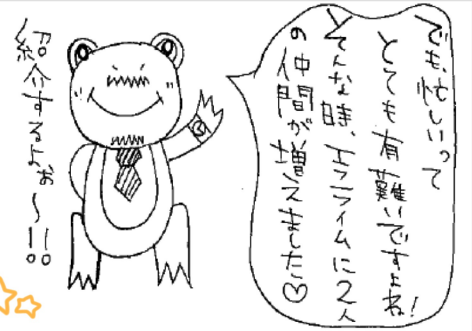 でも、忙しいって
とても有難いですよね!
そんな時、エフライムに2人
の仲間が増えました♡
紹介するよぉ〜!!